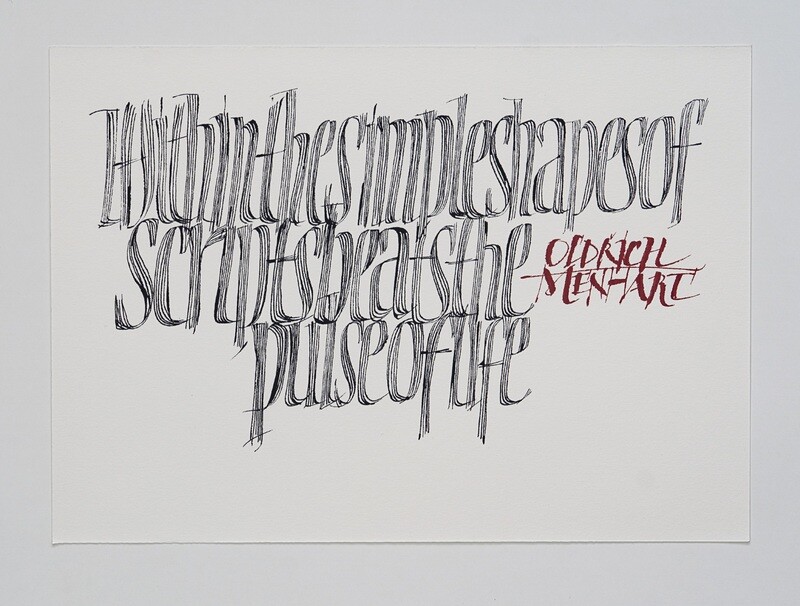 Within the simple shapes of
scripts beats the
pulse of life
OLDRICH
MENHART